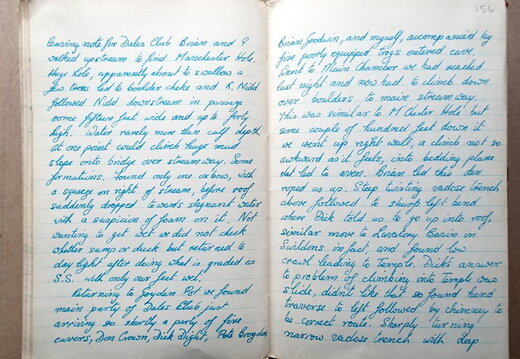 Leaving note for Dales Club Brian and I
walked upstream to find Manchester Hole.
Huge Hole, apparently about to swallow a
few trees led to boulder choke and R. Nidd
followed Nidd downstream in passage
some fifteen feet wide and up to forty
high. Water rarely more than calf depth
at one point could climb huge mud
steps onto bridge over streamway. Some
formations. Found only one oxbow, with
a squeeze on right of stream, before roof
suddenly dropped towards stagnant water
with a suspicion of foam on it. Not
wanting to get wet we did not check
whether sump or duck but returned to
day light after doing what is graded as
S.S. with only our feet wet.
Returning to Goyden Pot we found
main party of Dales Club just
arriving so shortly a party of five
cavers, Don Crown, Dick Dight, Pete Brogden,
156
Brian Goodwin, and myself, accompanied by
five poorly equipped trogs entered cave.
Went to Main Chamber we had reached
last night and now had to climb down
over boulders to main streamway.
This was similar to M'Chester Hole but
some couple of hundred feet down it
we went up right wall, a climb not so
awkward as it feels, into bedding plane
led to aven. Brian led this then
roped us up. Steep twisting vadose trench
above followed to sharp left bend
where Dick told us to go up into roof
similar move to Lavatory Basin in
Swildons in fact, and found low
crawl leading to Temple. Dick's answer
to problem of climbing into Temple was
slide, didn't like that so found hand
traverse to left followed by chimney to
be correct route. Sharply turning
narrow vadose trench with deep